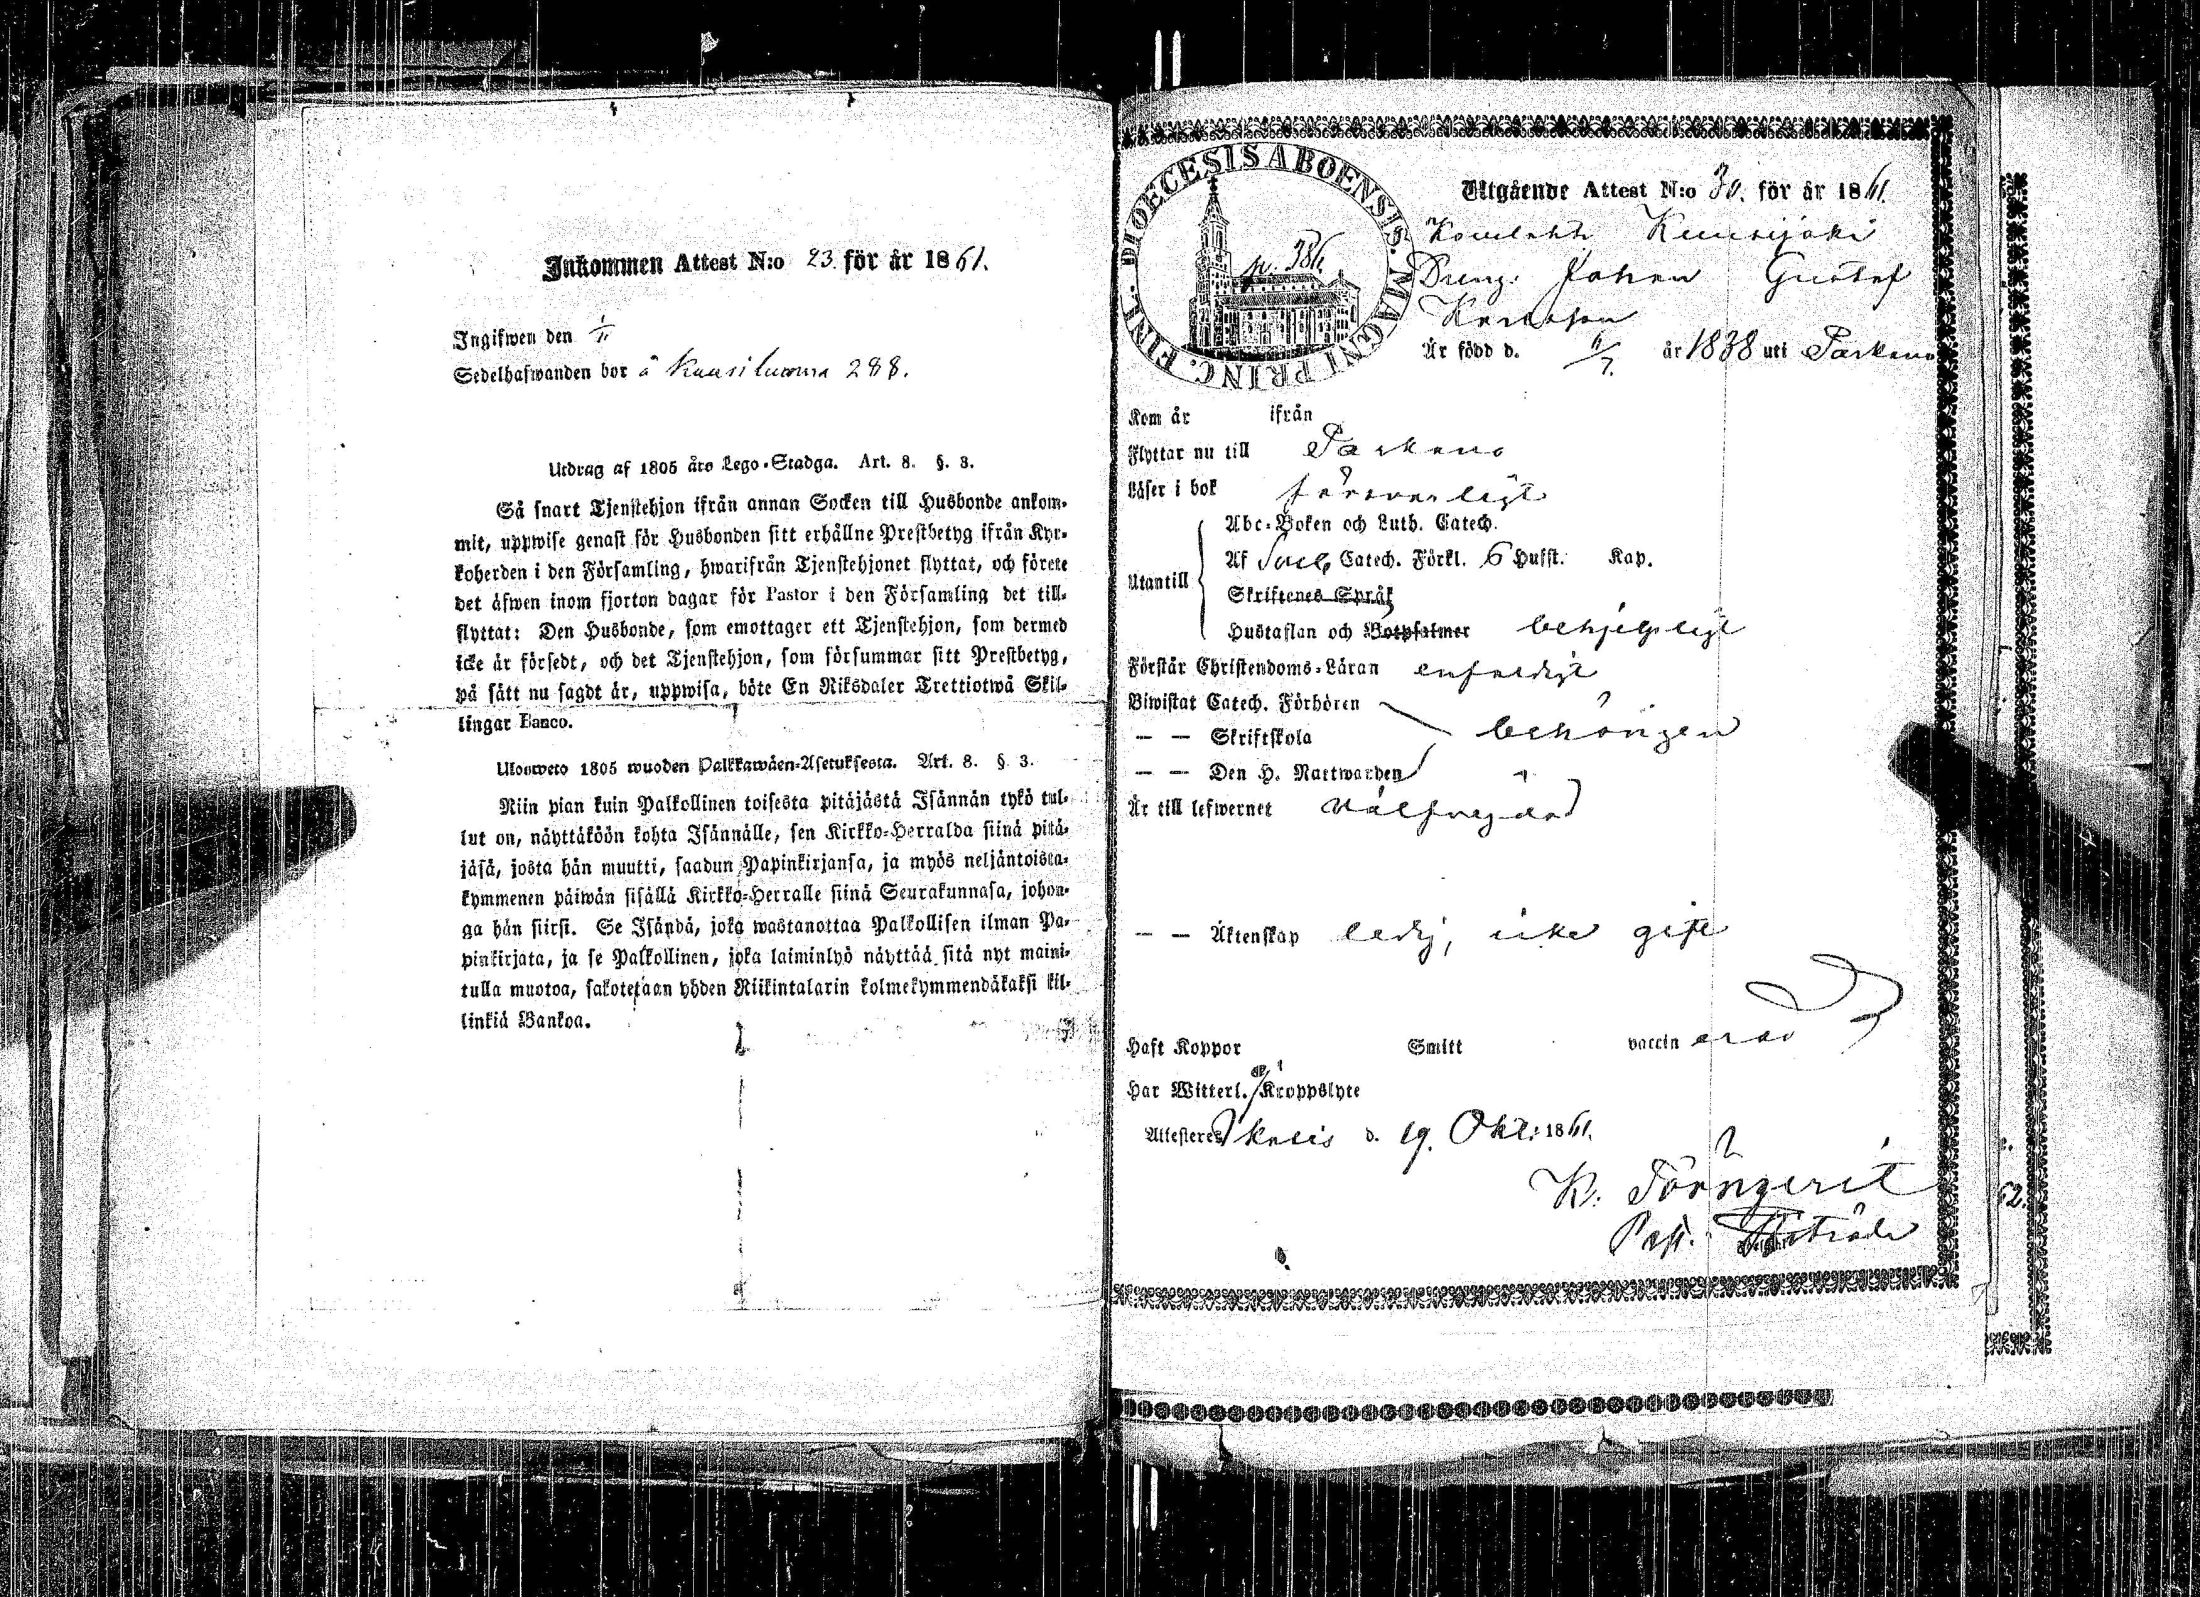 Inkommen Attest N:o 23. för år 1861.
Ingifwen den 1/11
Sedelhafwanden bor å Kuusiluoma 288.
Utdrag af 1805 års Lego-Stadga. Art. 8. §. 3.
Så snart Tjenstehjon ifrån annan Socken till Husbonde ankom-
mit, uppwise genast för Husbonden sitt erhållne Prestbetyg ifrån Kyr-
koherden i den Församling, hwarifrån Tjenstehjonet flyttat, och förete
det äfwen inom fjorton dagar för Pastor i den Församling det till-
flyttat: Den Husbonde, som emottager ett Tjenstehjon, som dermed
icke är försedt, och det Tjenstehjon, som försummar sitt Prestbetyg,
på sätt nu sagdt är, uppwisa, böte En Riksdaler Trettiotwå Skil-
lingar Banco.
Ulosweto 1805 wuoden Palkkawäen-Asetuksesta. Art. 8. § 3.
Niin pian kuin Palkollinen toisesta pitäjästä Isännän tykö tul-
lut on, näyttäköön kohta Isännälle, sen Kirkko-Herralda siinä pitä-
jäsä, josta hän muutti, saadun Papinkirjansa, ja myös neljäntoista-
kymmenen päiwän sisällä Kirkko-Herralle siinä Seurakunnasa, johon-
ga hän siirsi. Se Isändä, joka wastanottaa Palkollisen ilman Pa-
pinkirjata, ja se Palkollinen, joka laiminlyö näyttää sitä nyt maini-
tulla muotoa, sakotetaan yhden Riikintalarin kolmekymmendäkaksi kil-
linkiä Bankoa.
DIOECESIS ABOENSIS. MAGNI PRINC. FINL.
p. 386.
Utgående Attest N:o 30. för år 1861.
Dreng. Johan Gustaf
Är född d. 6/7. år 1838 uti Parkano
Kom år ifrån
Flyttar nu till Parkano
Läser i bok försvarligt
Abc-Boken och Luth. Catech.
Utantill
Af Sveb. Catech. Förkl. 6 Hufst. Kap.
Skriftenes Språk
Hustaflan och Botpsalmer behjelpligt
Förstår Christendoms-Läran enfaldigt
Biwistat Catech. Förhören
— — Skriftskola behörigen
— — Den H. Nattwarden
Är till lefwernet välfrejdad
— — Äktenskap ledig, icke gift
Haft Koppor Smitt vaccinerad
Har Witterl. ej Kroppslyte
Attesteres Ikalis d. 19. Okt. 1861.
62.